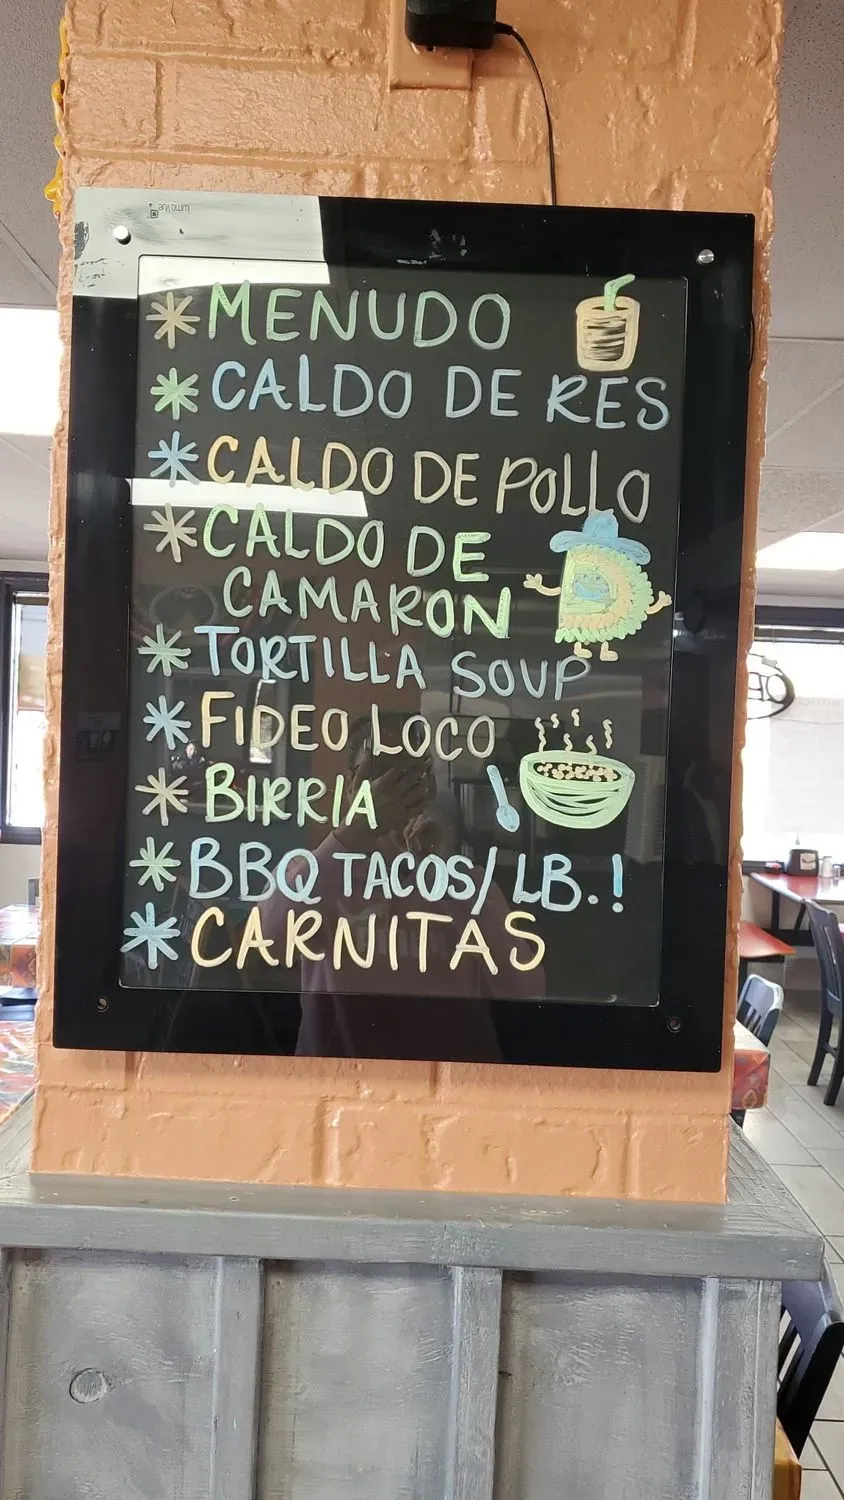 * MENUDO
* CALDO DE RES
* CALDO DE POLLO
* CALDO DE
CAMARON
* TORTILLA SOUP
* FIDEO LOCO
* BIRRIA
* BBQ TACOS/LB.!
* CARNITAS